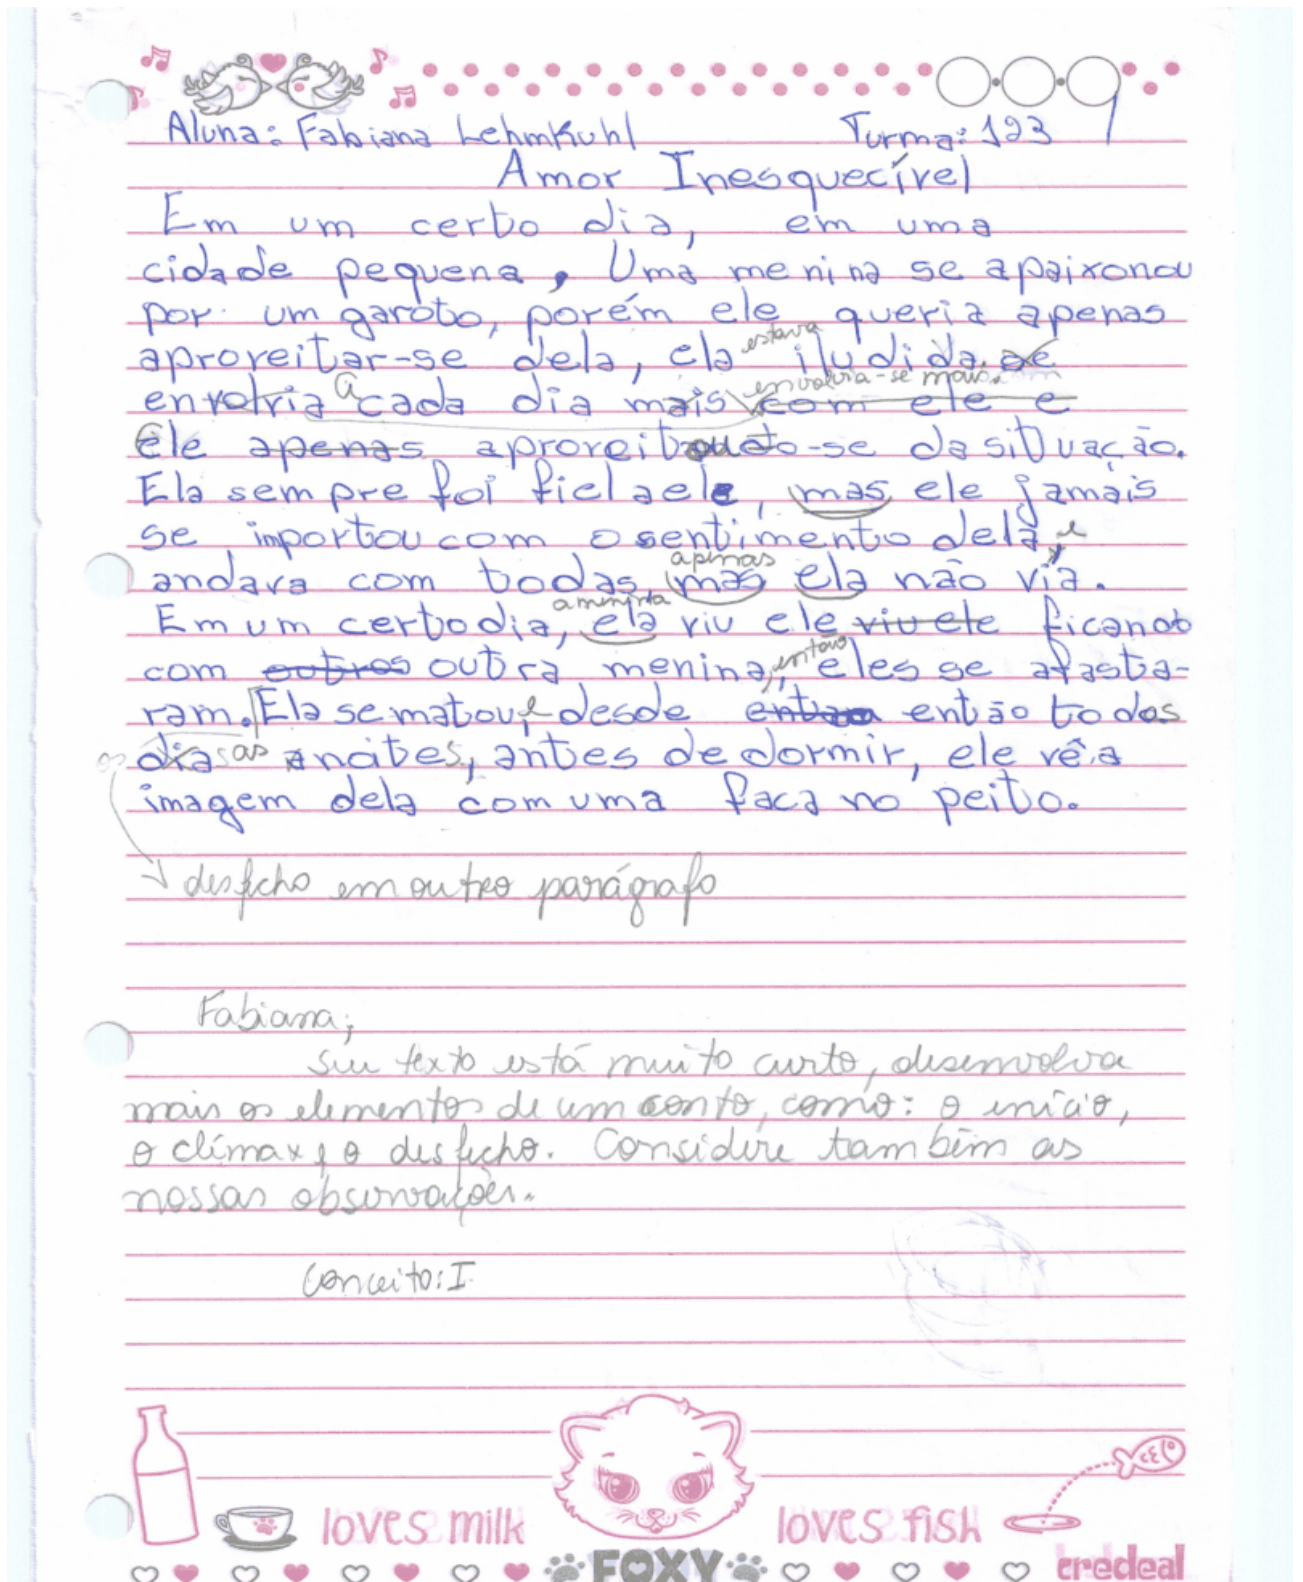 Aluna: Fabiana Lehmkuhl Turma: 123
Amor Inesquecível
Em um certo dia, em uma
cidade pequena, Uma menina se apaixonou
por um garoto, porém ele queria apenas
estava
aproveitar-se dela, ela iludida se
envolvia-se mais.
envolvia a cada dia mais com ele e
Ele apenas aproveitou-se da situação.
Ela sempre foi fiel a ele, mas ele jamais
se importou com o sentimento dela, e
apenas
andava com todas mas ela não via.
a menina
Em um certo dia, ela viu ele viu ele ficando
então
com outros outra menina, eles se afasta-
ram. Ela se matou, e desde então todos
os dia as anoites, antes de dormir, ele vê a
imagem dela com uma faca no peito.
desfecho em outro parágrafo
Fabiana;
Seu texto está muito curto, desenvolva
mais os elementos de um conto, como: o início,
o clímax, o desfecho. Considere também as
nossas observações.
Conceito: I
loves milk
loves fish
FOXY
credeal